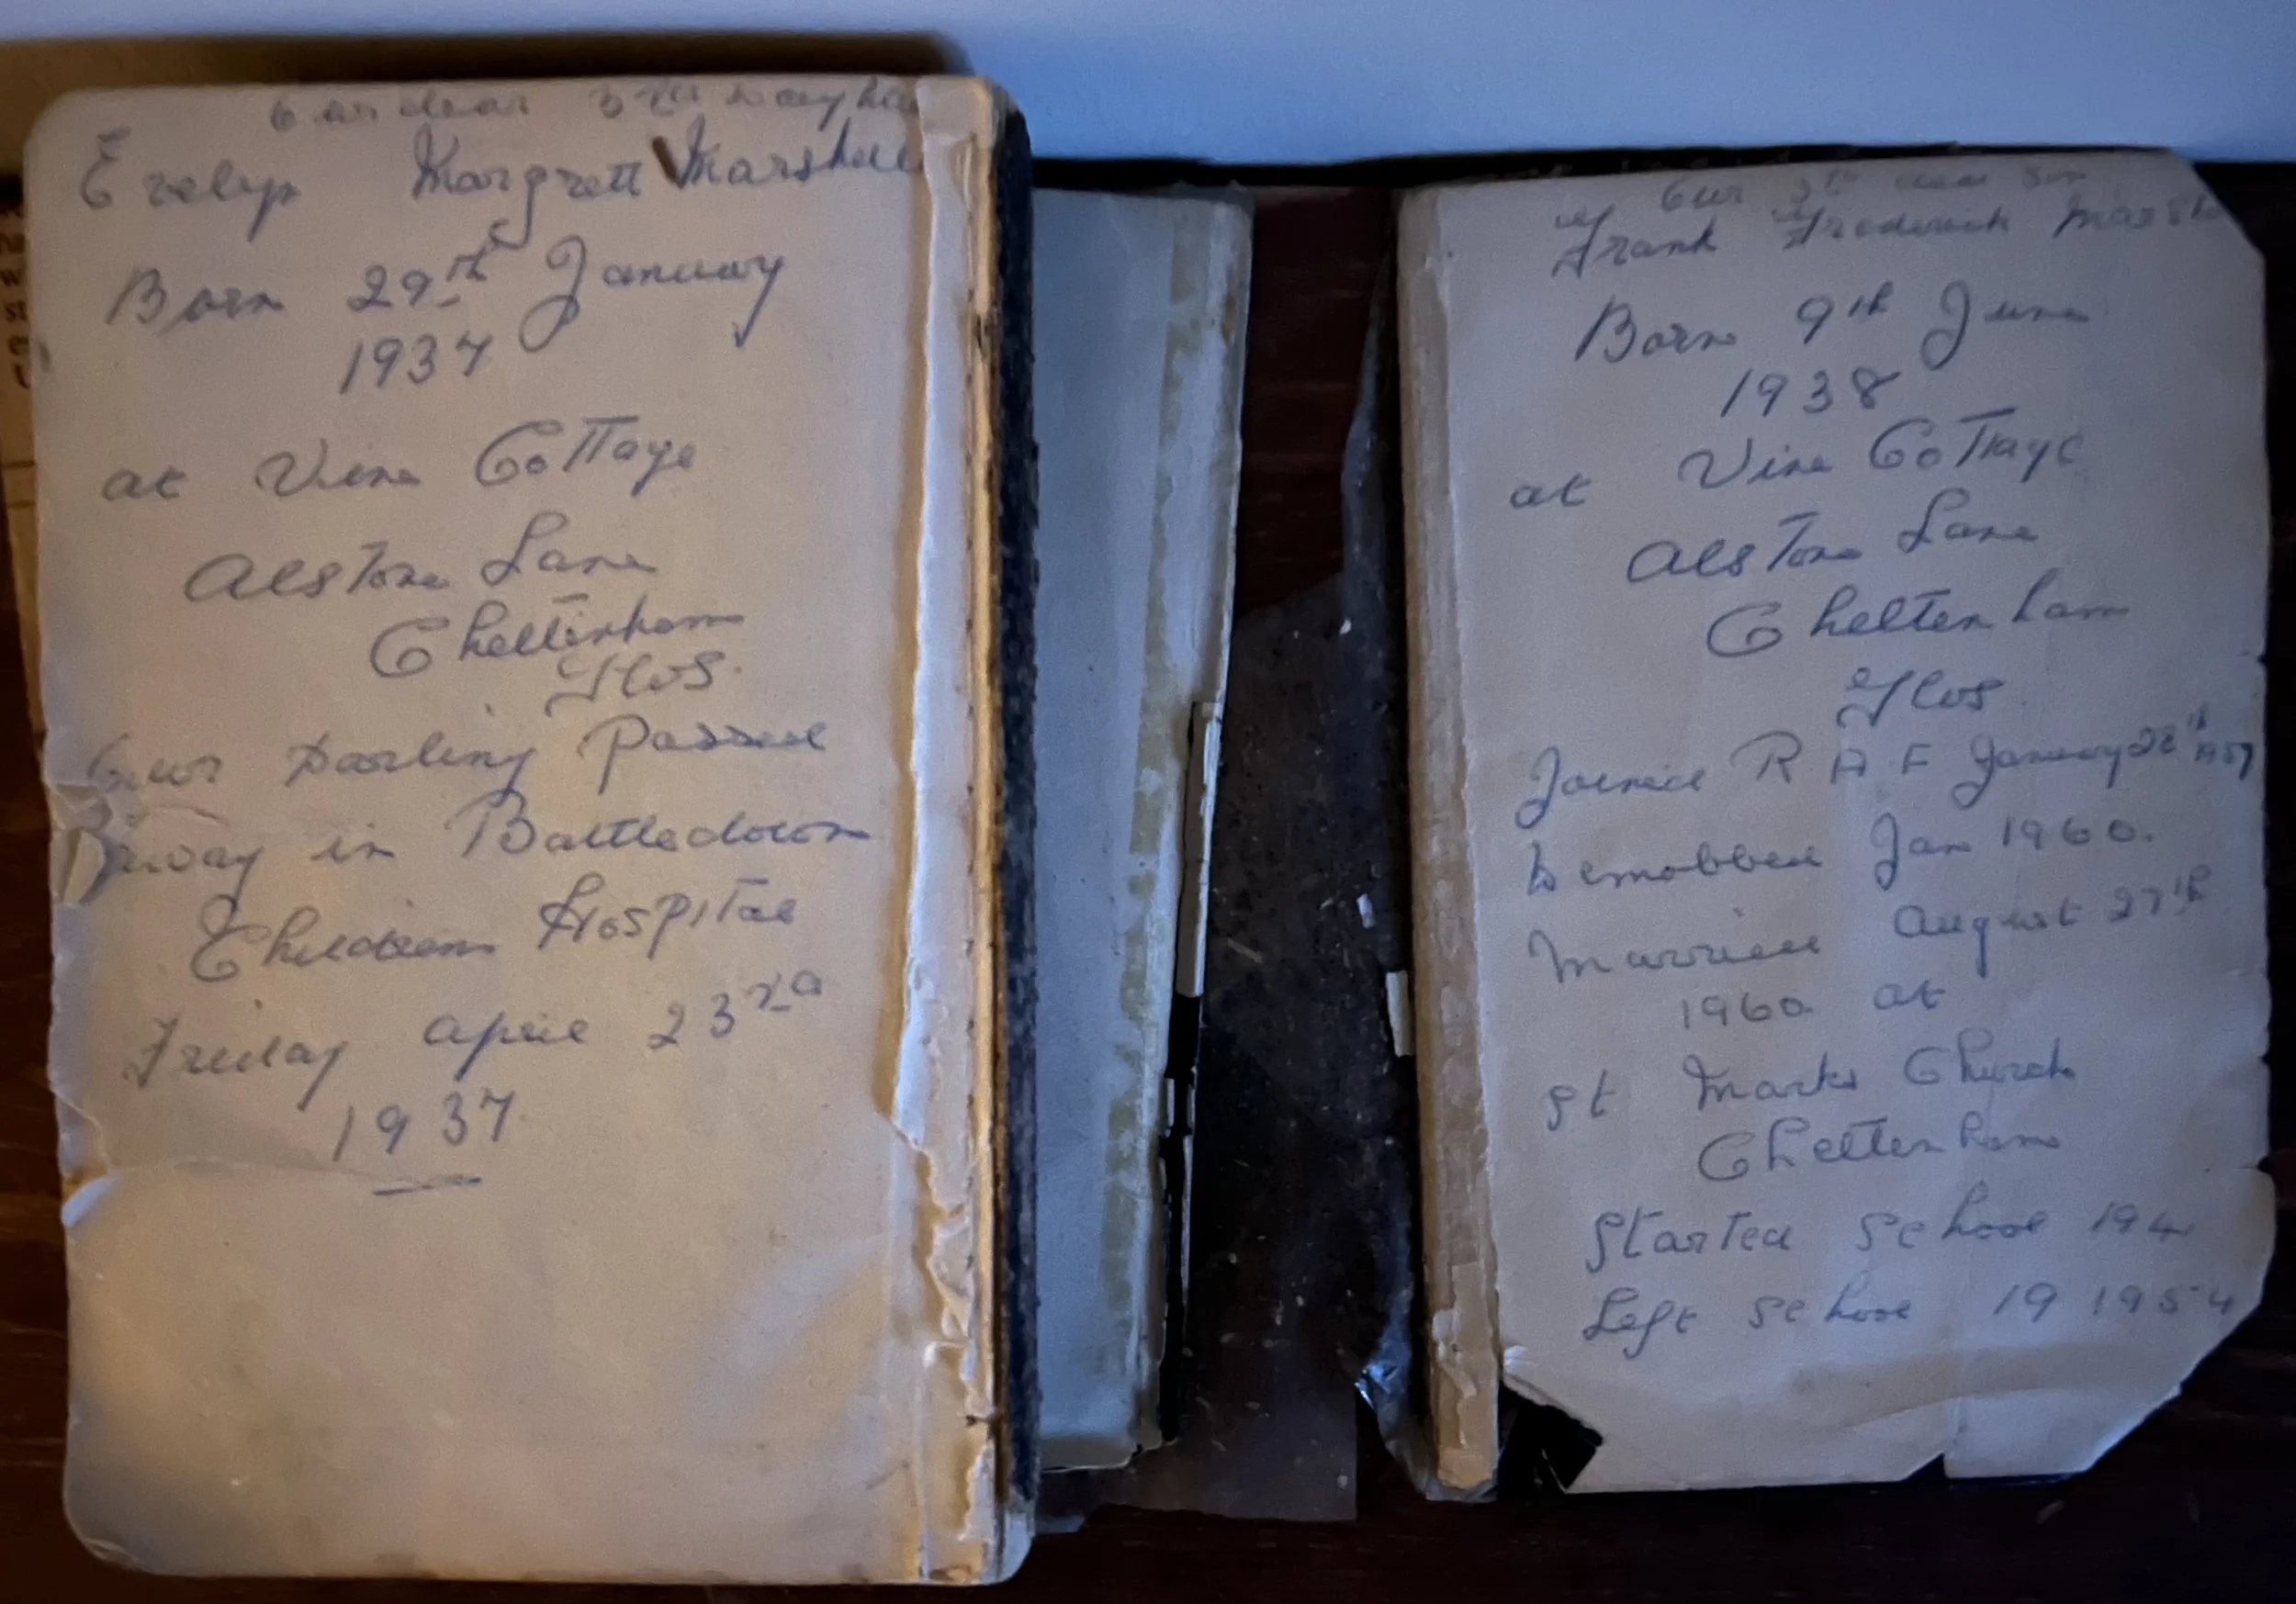 Our dear 3rd Daughter
Evelyn Margrett Marshall
Born 29th January
1937
at Vine Cottage
Alstone Lane
Cheltenham
Glos.
Our Darling Passed
Away in Battledown
Childrens Hospital
Friday April 23rd
1937
Our 5th dear Son
Frank Frederick Marsh
Born 9th June
1938
at Vine Cottage
Alstone Lane
Cheltenham
Glos
Joined R A F January 28th 1957
Demobbed Jan 1960.
Married August 27th
1960 at
St Marks Church
Cheltenham
Started School 194
Left School 19 1954